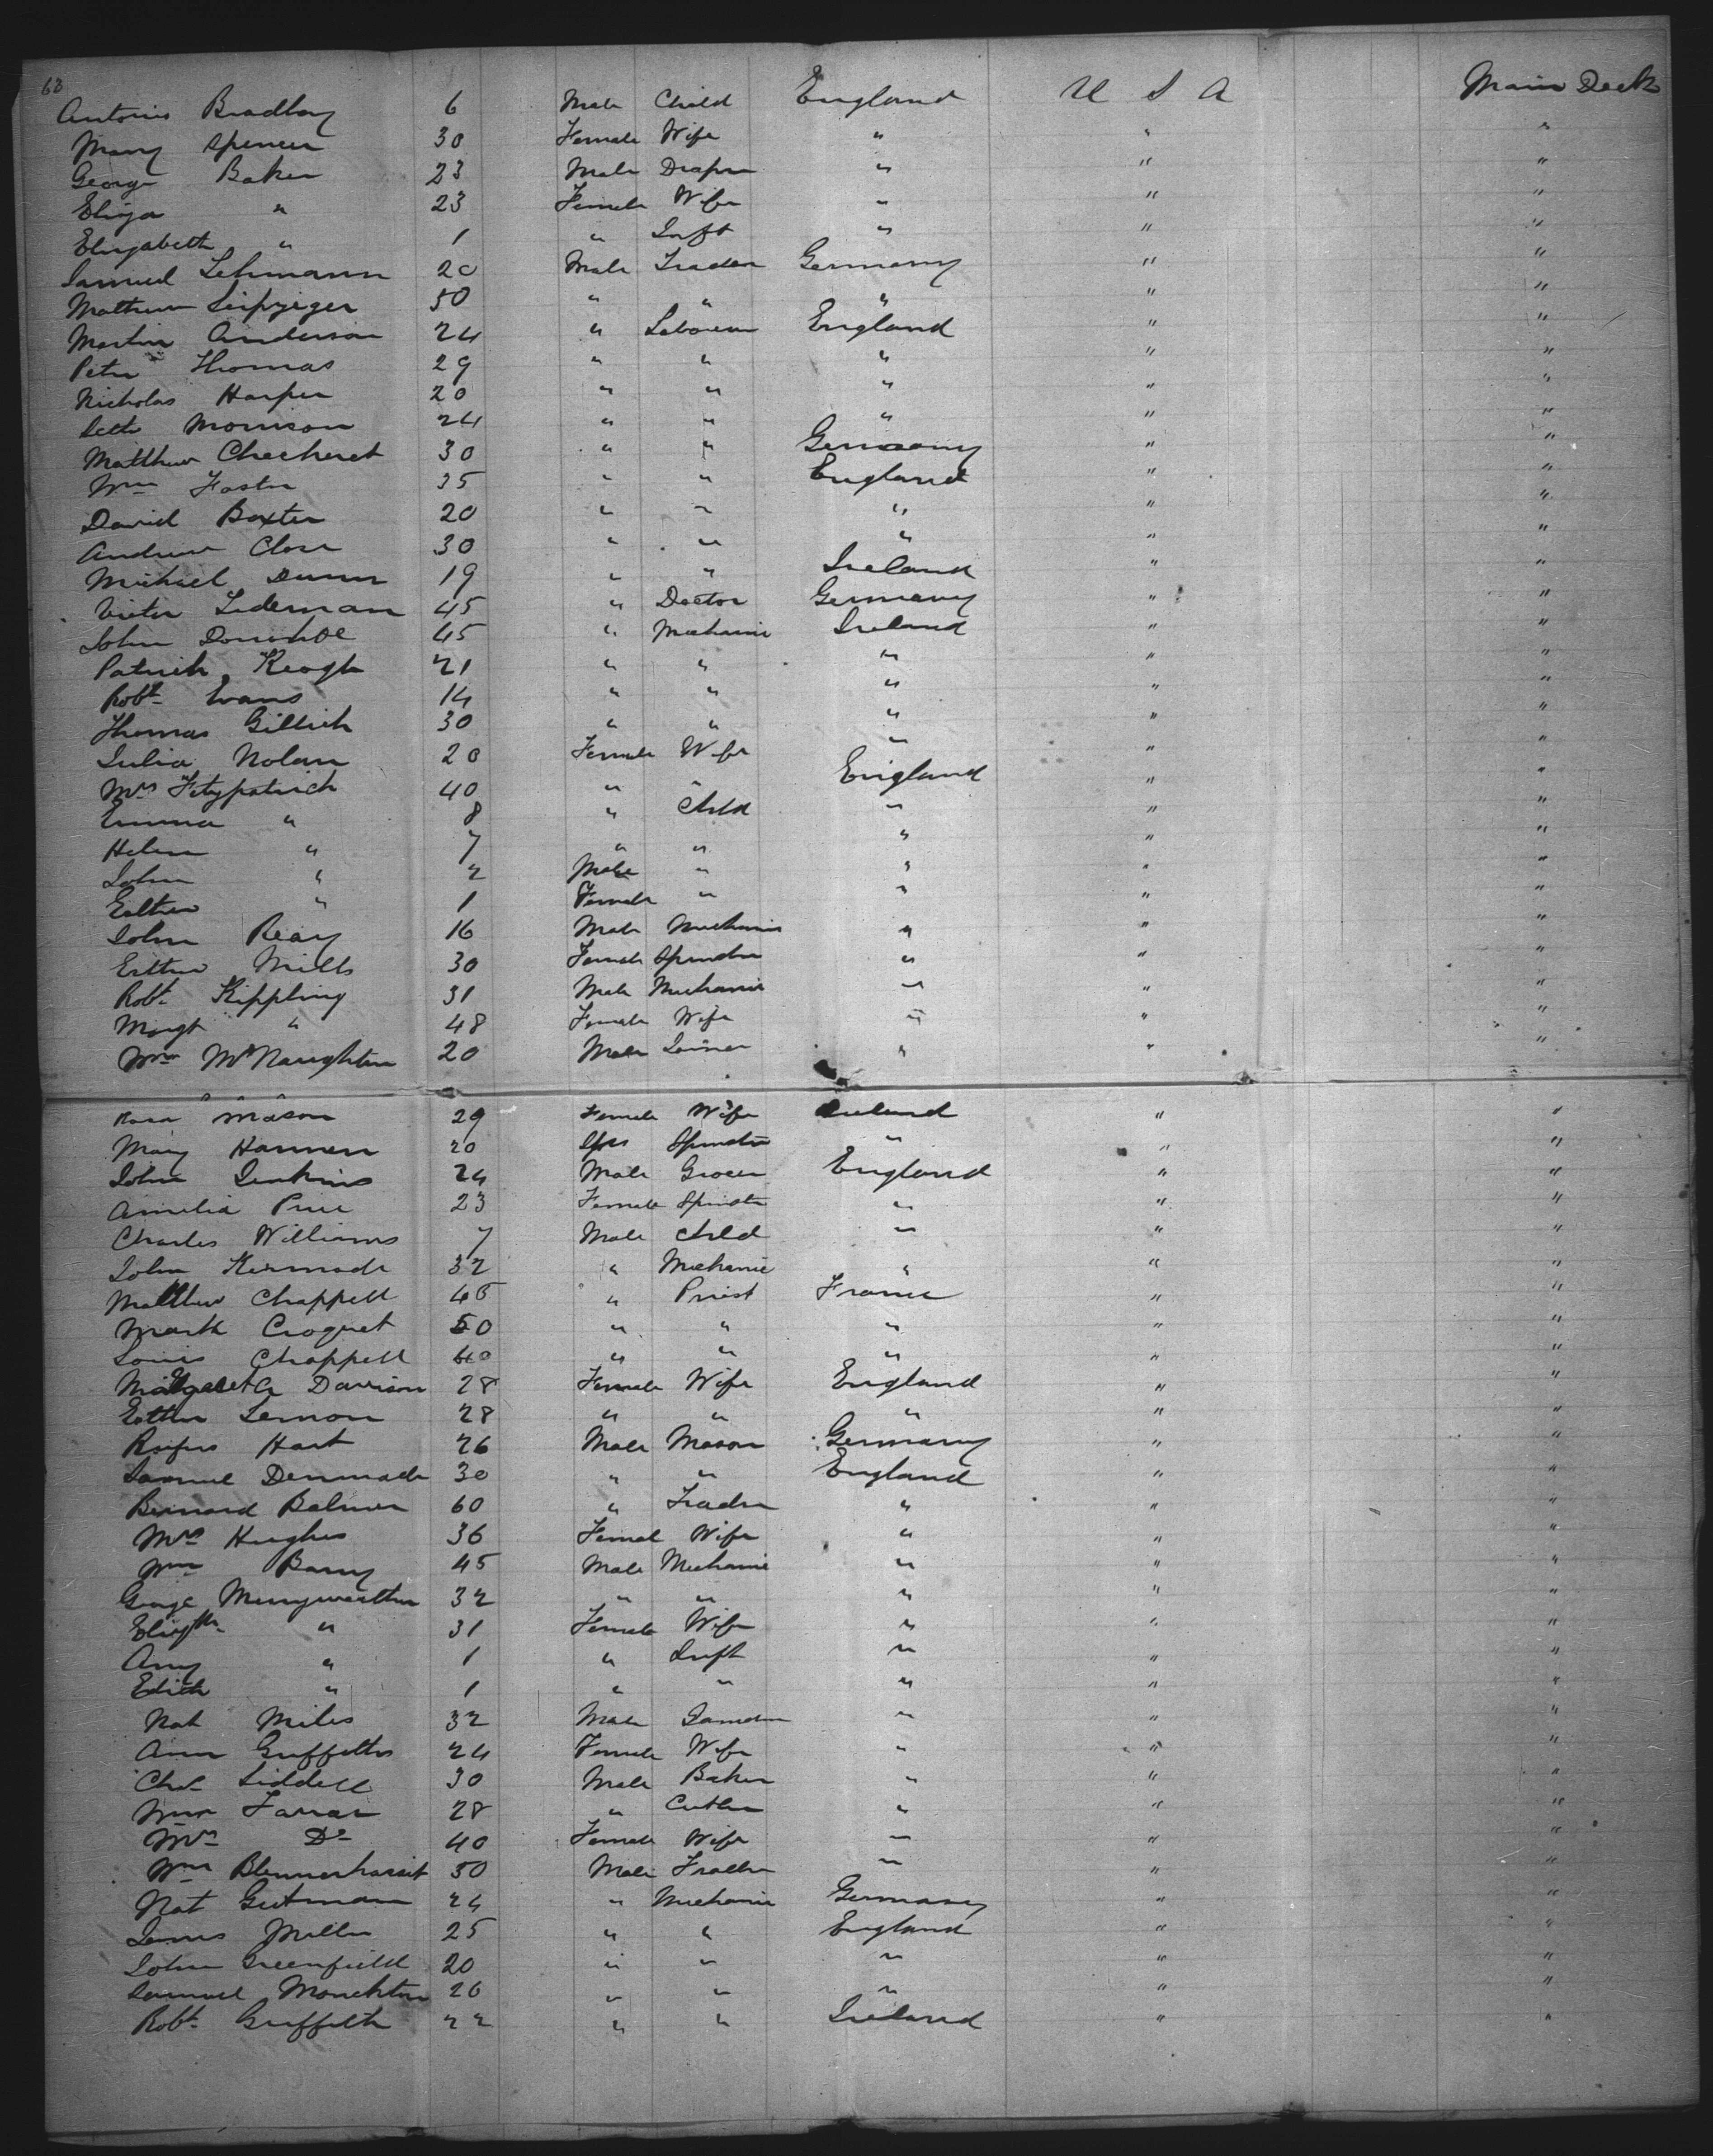 63
Antonis Bradbay 6 Male Child England U S A Main Deck
Mary Spencer 30 Female Wife " " "
George Baker 23 Male Draper " " "
Eliza " 23 Female Wife " " "
Elizabeth " 1 " Inft " " "
Samuel Lehmann 20 Male Trader Germany " "
Mathew Leipziger 50 " " " " "
Martin Anderson 24 " Laborer England " "
Peter Thomas 29 " " " " "
Nicholas Harper 20 " " " " "
Seth Morrison 24 " " " " "
Matthew Checheret 30 " " Germany " "
Wm Foster 35 " " England " "
David Baxter 20 " " " " "
Andrew Close 30 " " " " "
Michael Dunn 19 " " Ireland " "
Victor Lederman 45 " Doctor Germany " "
John Donohoe 45 " Mechanic Ireland " "
Patrick Keogh 21 " " " " "
Robt Evans 14 " " " " "
Thomas Gillick 30 " " " " "
Julia Nolan 20 Female Wife " " "
Mrs Fitzpatrick 40 " " England " "
Emma " 8 " Child " " "
Helen " 7 " " " " "
John " 2 Male " " " "
Esther " 1 Female " " " "
John Reay 16 Male Mechanic " " "
Esther Mills 30 Female Spinster " " "
Robt Kippling 31 Male Mechanic " " "
Margt " 48 Female Wife " " "
Wm McNaughton 20 Male Joiner " " "
Rosa Mason 29 Female Wife Ireland " "
Mary Hannen 20 Spinster " " "
John Jenkins 24 Male Grocer England " "
Amelia Price 23 Female Spinster " " "
Charles Williams 7 Male Child " " "
John Kermode 32 " Mechanic " " "
Matthew Chappell 46 " Priest France " "
Mark Croquet 50 " " " " "
Louis Chappell 40 " " " " "
Margaret A Davison 28 Female Wife England " "
Esther Lemon 28 " " " " "
Rufus Hart 26 Male Mason Germany " "
Samuel Denmade 30 " " England " "
Bernard Balmer 60 " Trader " " "
Mrs Hughes 36 Femal Wife " " "
Wm Barry 45 Male Mechanic " " "
George Merryweather 32 " " " " "
Elizth " 31 Female Wife " " "
Amy " 1 " Inft " " "
Edith " 1 " " " " "
Nat Miles 32 Male " " "
Ann Griffiths 24 Female Wife " " "
Chas Liddell 30 Male Baker " " "
Wm Farrar 28 " Cutler " " "
Mrs Do 40 Female Wife " " "
Wm Blennerhassit 50 Male Trader " " "
Nat Gutman 24 " Mechanic Germany " "
James Miller 25 " " England " "
John Greenfield 20 " " " " "
Samuel Monckton 26 " " " " "
Robt Griffith 22 " " Ireland " "